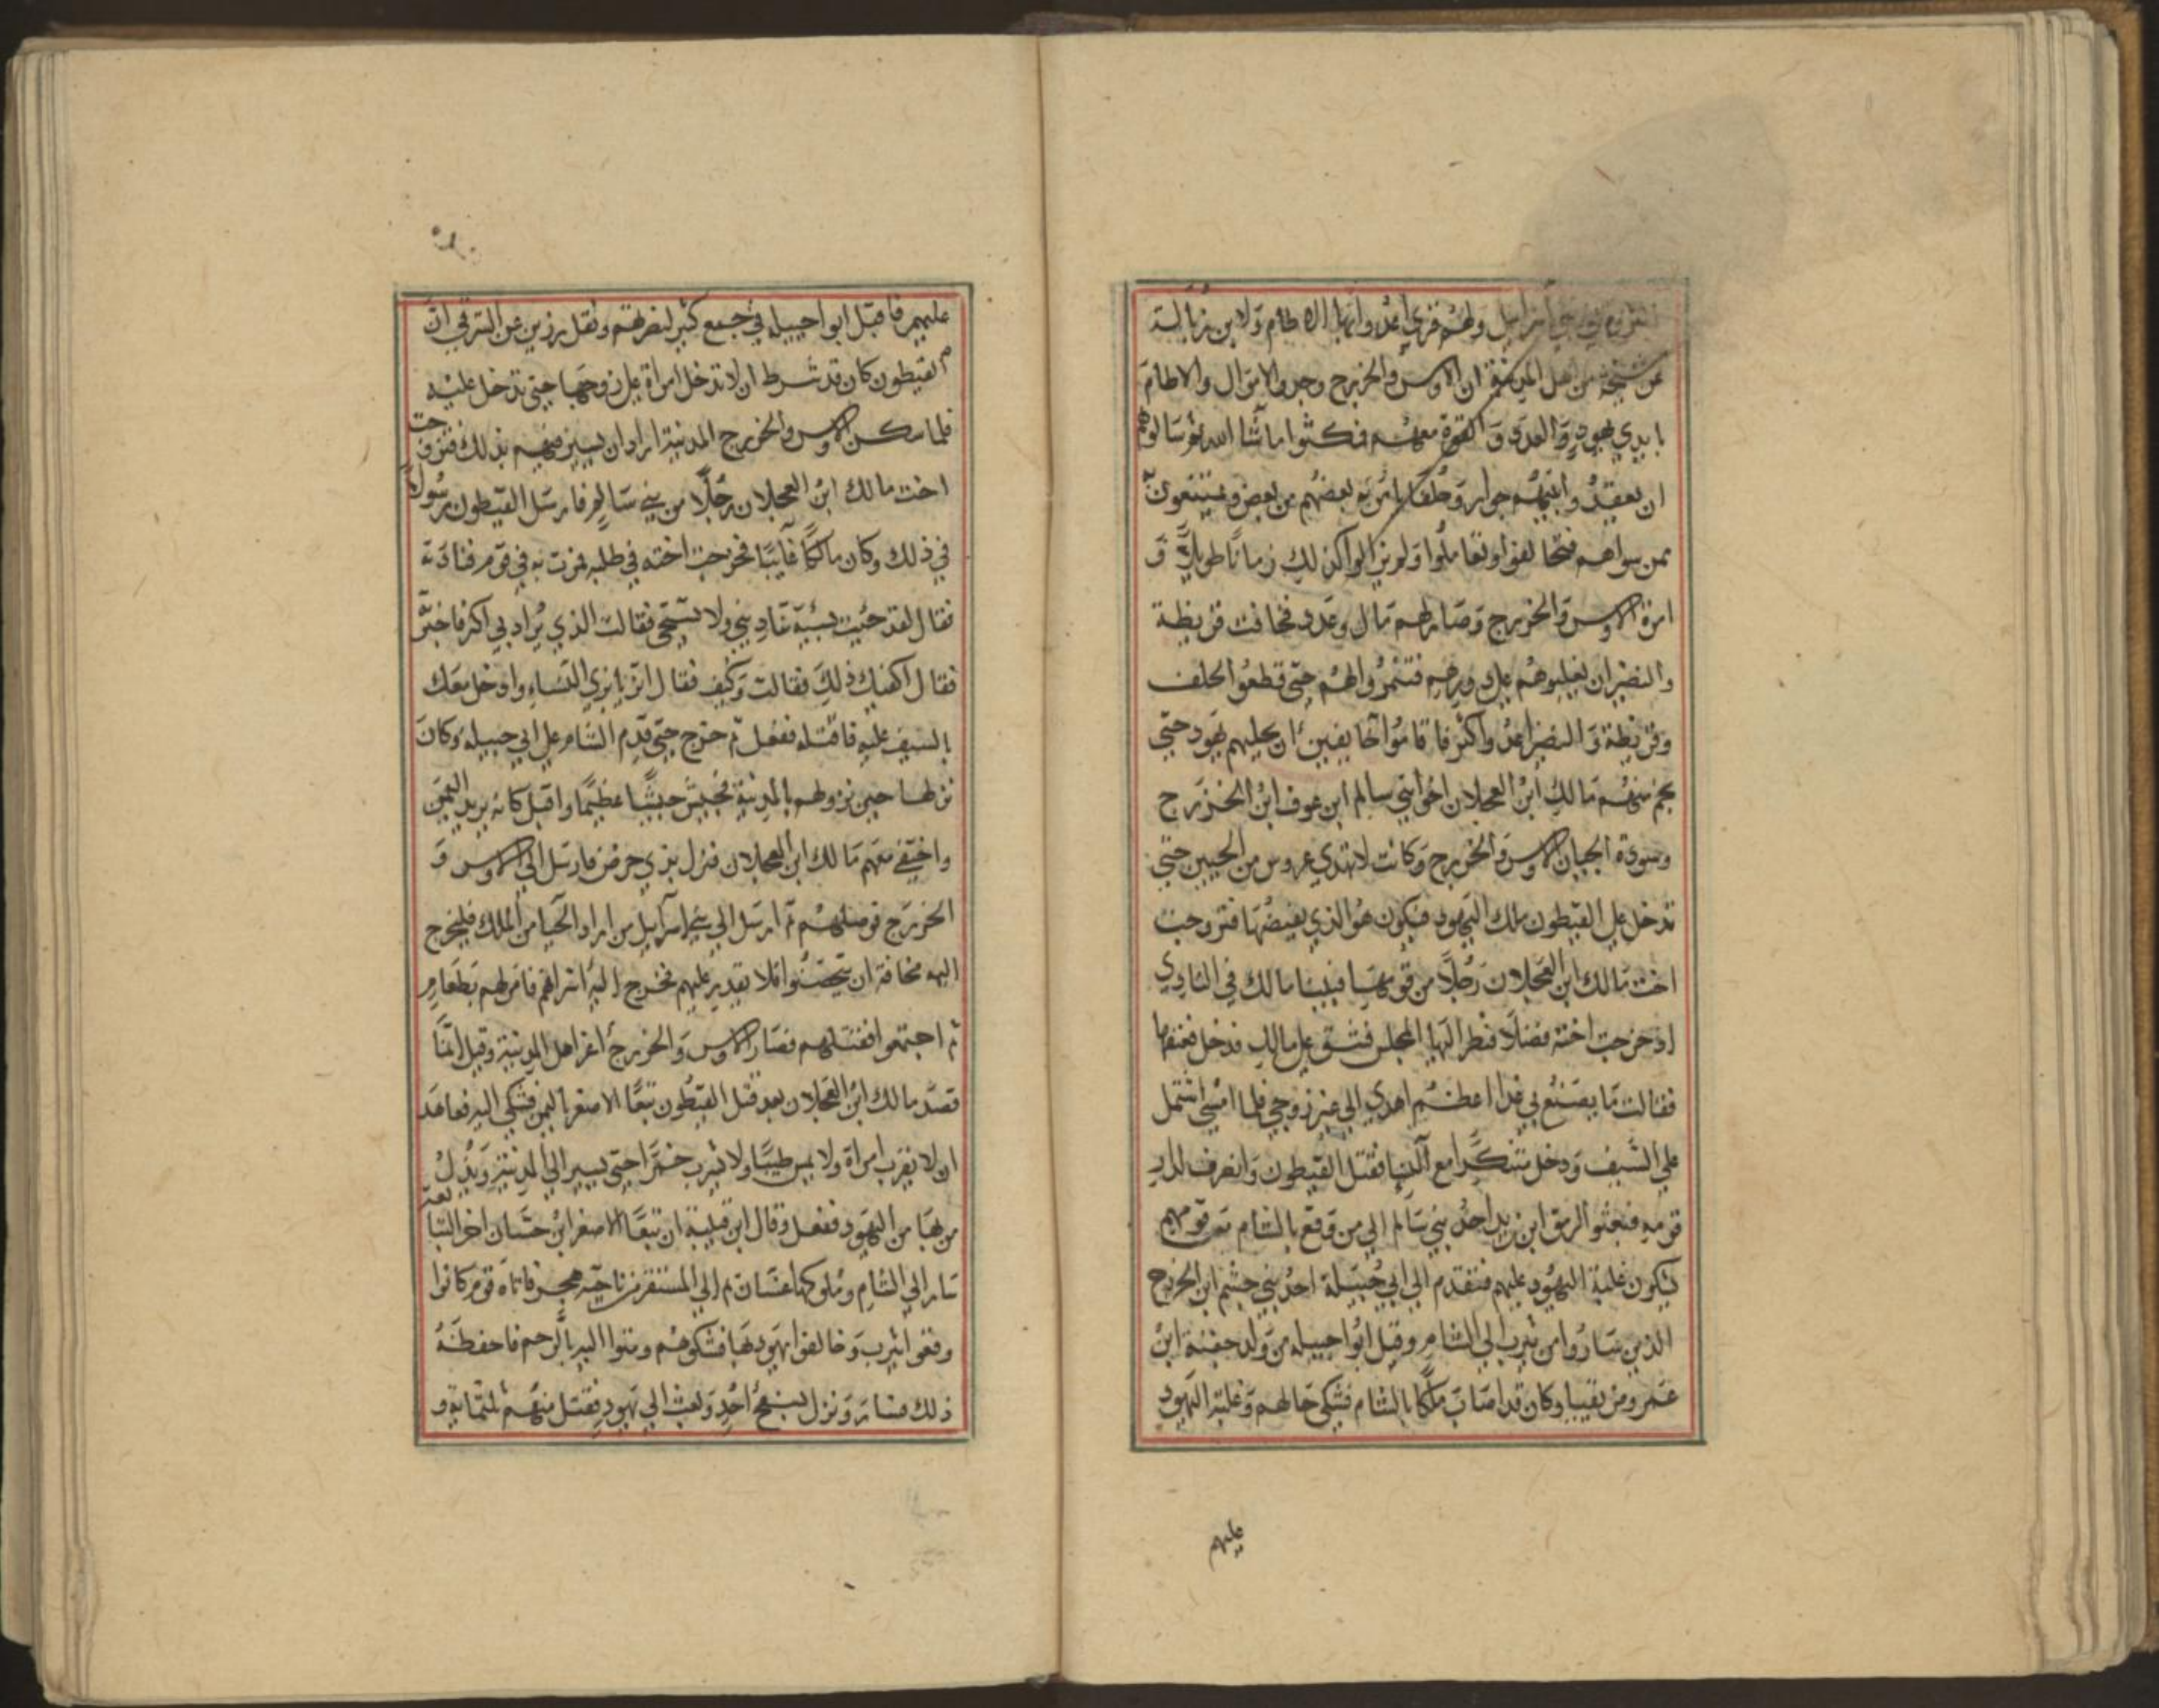 ولهم قري اعدوا بها الاطام ولابن زبالة
عن مشيخة من اهل المدينة ان الاوس والخزرج وجدوا الاموال والاطام
بايدي يهود والعدد والقوة معهم فمكثوا ما شا الله ثم سالوهم
ان يعقدوا بينهم جوار وحلفا يامن به بعضهم من بعض ويمتنعون
ممن سواهم فتحالفوا وتعاملوا ولم يزالوا كذلك زمانا طويلا و
امرة الاوس والخزرج وصار لهم مال وعدد فخافت قريظة
والنضير ان يغلبوهم علي دورهم فتنمروا لهم حتى قطعوا الحلف
وقريظة والنضير اعدوا كثر فاقاموا خايفين ان يجليهم يهود حتى
نجم منهم مالك ابن العجلان اخو ابني سالم ابن عوف ابن الخزرج
وسوده الحيان الاوس والخزرج وكانت لا تهدي عروس من الحيين حتى
تدخل علي القيطون ملك اليهود فيكون هو الذي يفيضها فتزوجت
اخت مالك ابن العجلان رجلا من قومها فبينا مالك في النادي
اذ خرجت اخته فضلا فنظر اليها المجلس فشق علي مالك فدخل فعنفها
فقالت ما يصنع بي غدا اعظم اهدي الي غير زوجي فلما امسى اشتمل
علي السيف ودخل متنكرا مع النسا فقتل القيطون وانصرف لدار
قومه فبعثوا الرمق ابن زيد احد بني سالم الي من وقع بالشام من قومهم
يشكون غلبة اليهود عليهم فتقدم الي ابي جبيلة احد بني جشم ابن الخزرج
الذين ساروا من يثرب الي الشام وقيل ابوا جبيله من ولد جفنة ابن
عمرو من بقيا وكان قد اصاب ملكا بالشام فشكى حالهم وغلبة اليهود
عليهم
عليهم فاقبل ابوا جبيله في جمع كثير لنصرتهم ونقل رزين عن الشرقي ان
القيطون كان قد شرط ان لا تدخل امراة علي زوجها حتى تدخل عليه
فلما سكن الاوس والخزرج المدينة اراد ان يسير فيهم بذلك فتزوجت
اخت مالك ابن العجلان رجلا من بني سالم فارسل القيطون رسولا
في ذلك وكان مالكا غايبا فخرجت اخته في طلبه فمرت به في قوم فنادته
فقال لقد جيت بسبة تناديني ولا تستحي فقالت الذي يراد بي اكبر فاخبرته
فقال اكفيك ذلك فقالت وكيف فقال اتزيا بزي النساء وادخل معك
بالسيف عليه فاقتله ففعل ثم خرج حتى قدم الشام علي ابي جبيله وكان
نزلها حين نزولهم بالمدينة فجيش جيشا عظيما واقبل كانه يريد اليمن
واختفي معهم مالك ابن العجلان فنزل بذي حرض فارسل الي الاوس و
الخزرج فوصلهم ثم ارسل الي بني اسراييل من اراد الحبا من الملك فليخرج
اليه مخافة ان يتحصنوا فلا يقدر عليهم فخرج اليه اشرافهم فامر لهم بطعام
ثم اجتمعوا فقتلهم فصار الاوس والخزرج اعز اهل المدينة وقيل انما
قصد مالك ابن العجلان بعد قتل القيطون تبعا الاصغر باليمن فشكى اليه فعاهد
ان لا يقرب امراة ولا يمس طيبا ولا يشرب خمرا حتى يسير الي المدينة ويذل
من بها من اليهود ففعل وقال ابن قتيبة ان تبعا الاصغر ابن حسان اخر التبابعة
سار الي الشام وملوكها غسان ثم الي المستقر من ناحية هجر فاتاه قوم كانوا
وقعوا يثرب وخالفوا يهود بها فشكوهم ومتوا اليه بالرحم فاحفظه
ذلك فسار ونزل بسفح احد وبعث الي يهود فقتل منهم ثلثماية و